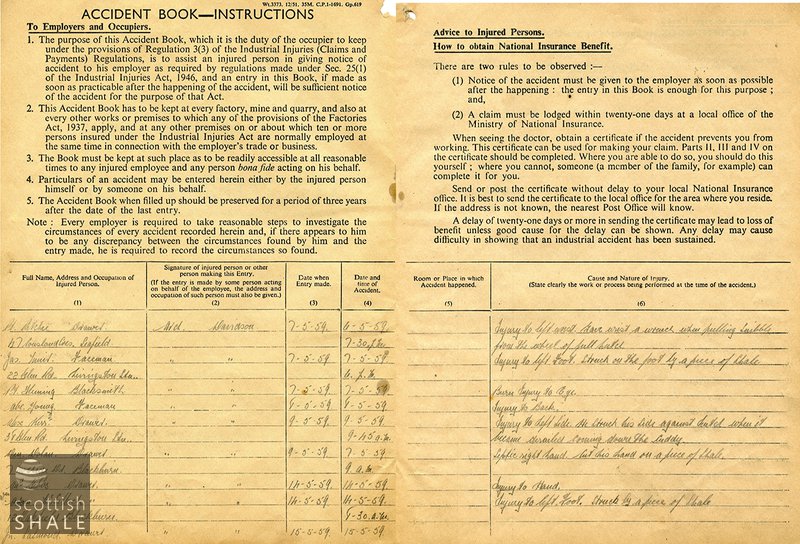 Wt.3373. 12/51. 35M. C.P.1-1691. Gp.619
ACCIDENT BOOK—INSTRUCTIONS
To Employers and Occupiers.
1. The purpose of this Accident Book, which it is the duty of the occupier to keep
under the provisions of Regulation 3(3) of the Industrial Injuries (Claims and
Payments) Regulations, is to assist an injured person in giving notice of
accident to his employer as required by regulations made under Sec. 25(1)
of the Industrial Injuries Act, 1946, and an entry in this Book, if made as
soon as practicable after the happening of the accident, will be sufficient notice
of the accident for the purpose of that Act.
2. This Accident Book has to be kept at every factory, mine and quarry, and also at
every other works or premises to which any of the provisions of the Factories
Act, 1937, apply, and at any other premises on or about which ten or more
persons insured under the Industrial Injuries Act are normally employed at
the same time in connection with the employer's trade or business.
3. The Book must be kept at such place as to be readily accessible at all reasonable
times to any injured employee and any person bona fide acting on his behalf.
4. Particulars of an accident may be entered herein either by the injured person
himself or by someone on his behalf.
5. The Accident Book when filled up should be preserved for a period of three years
after the date of the last entry.
Note : Every employer is required to take reasonable steps to investigate the
circumstances of every accident recorded herein and, if there appears to him
to be any discrepancy between the circumstances found by him and the
entry made, he is required to record the circumstances so found.
Advice to Injured Persons.
How to obtain National Insurance Benefit.
There are two rules to be observed :—
(1) Notice of the accident must be given to the employer as soon as possible
after the happening : the entry in this Book is enough for this purpose ;
and,
(2) A claim must be lodged within twenty-one days at a local office of the
Ministry of National Insurance.
When seeing the doctor, obtain a certificate if the accident prevents you from
working. This certificate can be used for making your claim. Parts II, III and IV on
the certificate should be completed. Where you are able to do so, you should do this
yourself ; where you cannot, someone (a member of the family, for example) can
complete it for you.
Send or post the certificate without delay to your local National Insurance
office. It is best to send the certificate to the local office for the area where you reside.
If the address is not known, the nearest Post Office will know.
A delay of twenty-one days or more in sending the certificate may lead to loss of
benefit unless good cause for the delay can be shown. Any delay may cause
difficulty in showing that an industrial accident has been sustained.
Full Name, Address and Occupation of
Injured Person.
(1)
Signature of injured person or other
person making this Entry.
(If the entry is made by some person acting
on behalf of the employee, the address and
occupation of such person must also be given.)
(2)
Date when
Entry made.
(3)
Date and
time of
Accident.
(4)
Room or Place in which
Accident happened.
(5)
Cause and Nature of Injury.
(State clearly the work or process being performed at the time of the accident.)
(6)
Ritchie Drawer Davidson 7-5-59 6-5-59 Injury to left wrist. Gave wrist a wrench when pulling
Seafield 7-30 from the wheel of full hutch
Jas. Faceman " " 7-5-59 7-5-59 Injury to left Foot. Struck on the foot by a piece of Shale
22 Rd. Livingston Stn.
Fleming Blacksmith " " 7-5-59 7-5-59 Burn Injury to Eye.
Young Faceman " " 8-5-59 8-5-59 Injury to Back.
Drawer " " 9-5-59 9-5-59 Injury to left side. He struck his side against hutch when it
Rd. Livingston Stn. 9-45 a.m. became derailed coming down the
Drawer " " 9-5-59 7-5-59 Septic right hand. Cut his hand on a piece of shale.
Rd. Blackburn. 9 a.m.
Drawer " " 14-5-59 Injury to Hand.
" " 14-5-59 14-5-59 Injury to left Foot. Struck by a piece of Shale
8-30 a.m.
15-5-59 15-5-59
scottish
SHALE